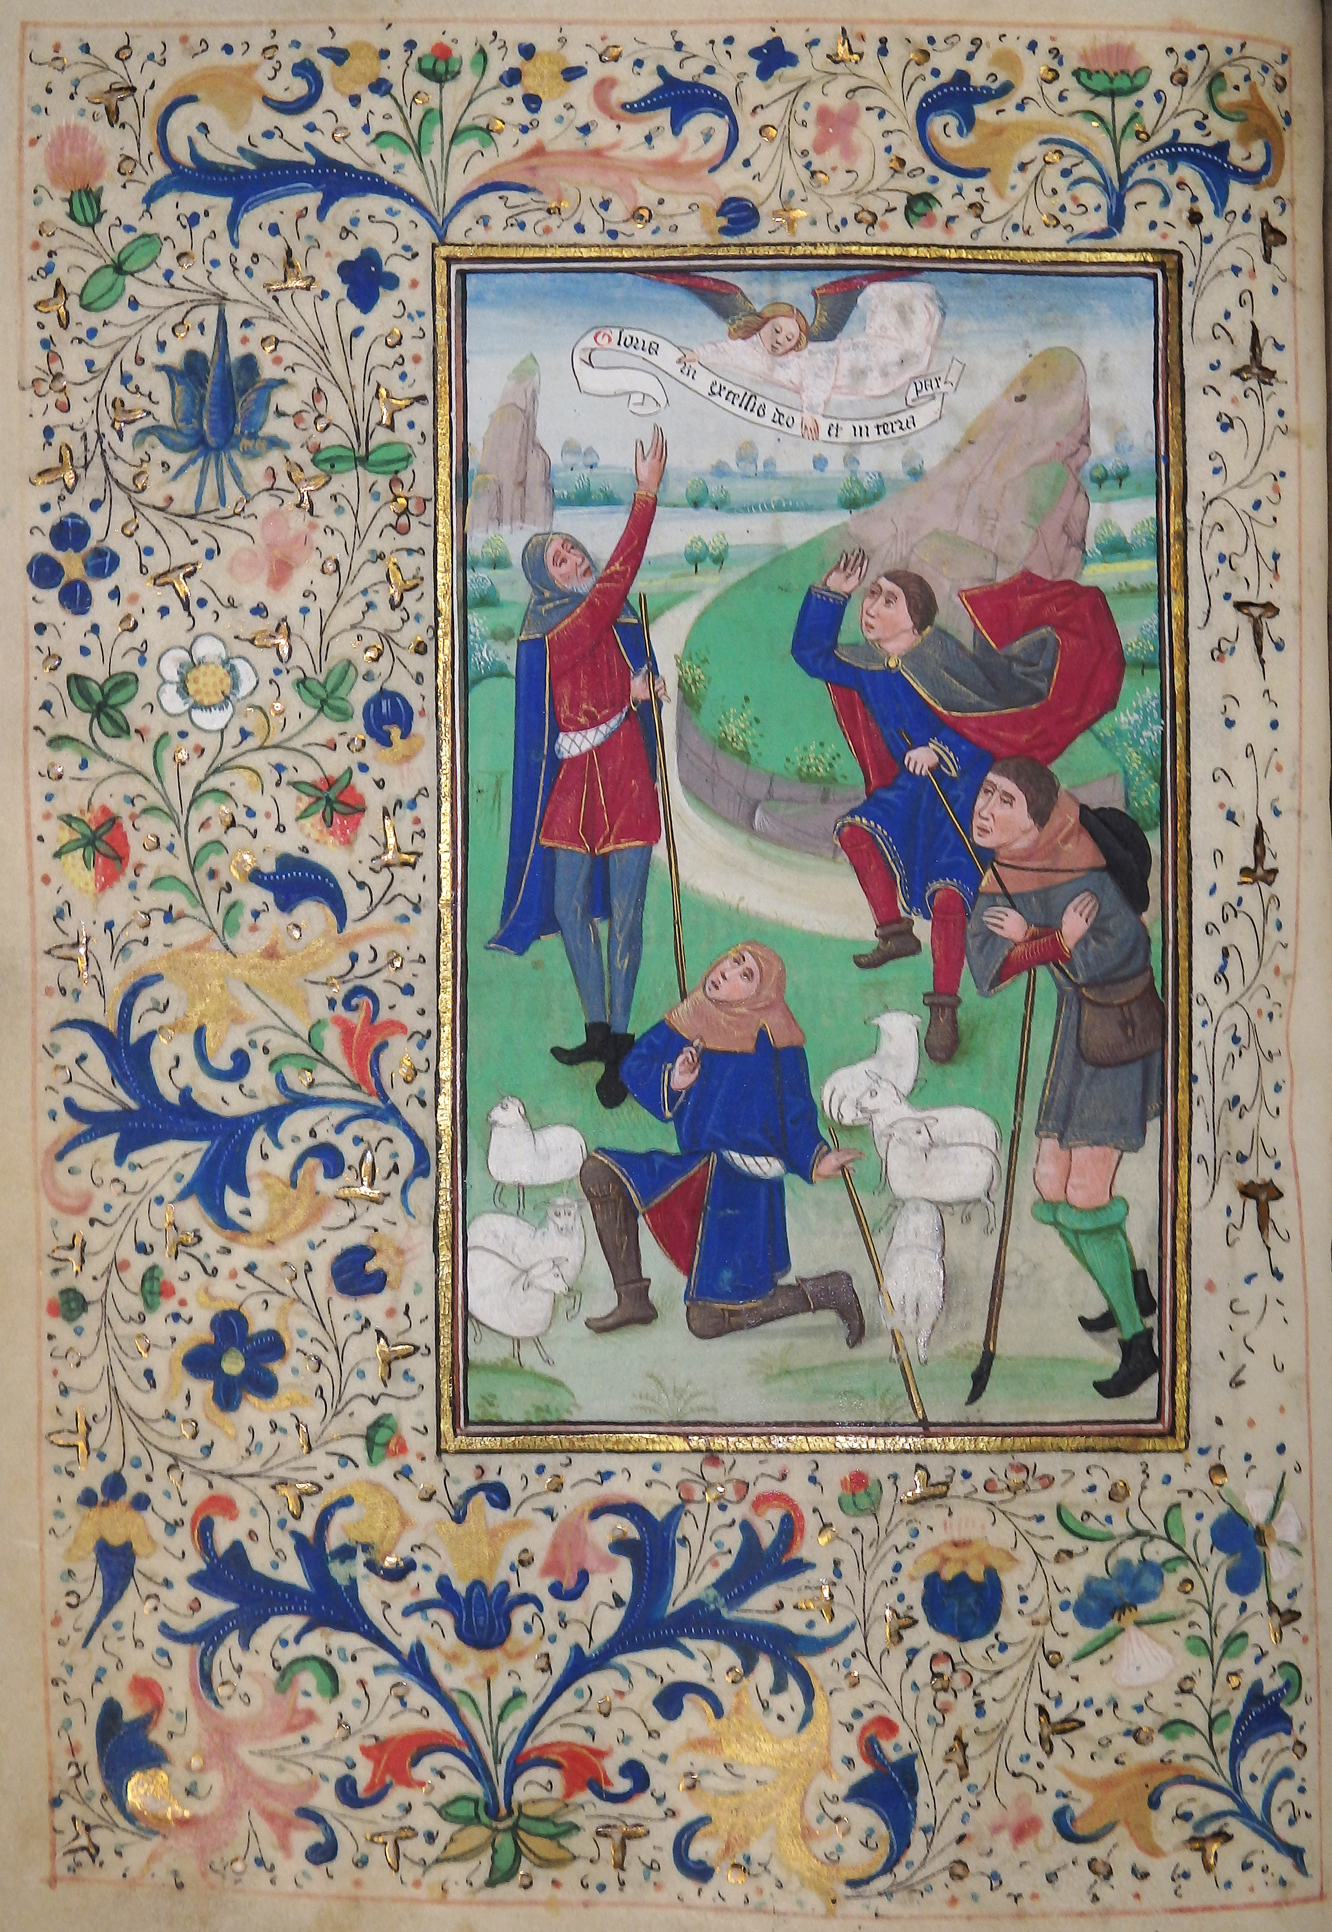 Gloria in excelsis deo et in terra pax